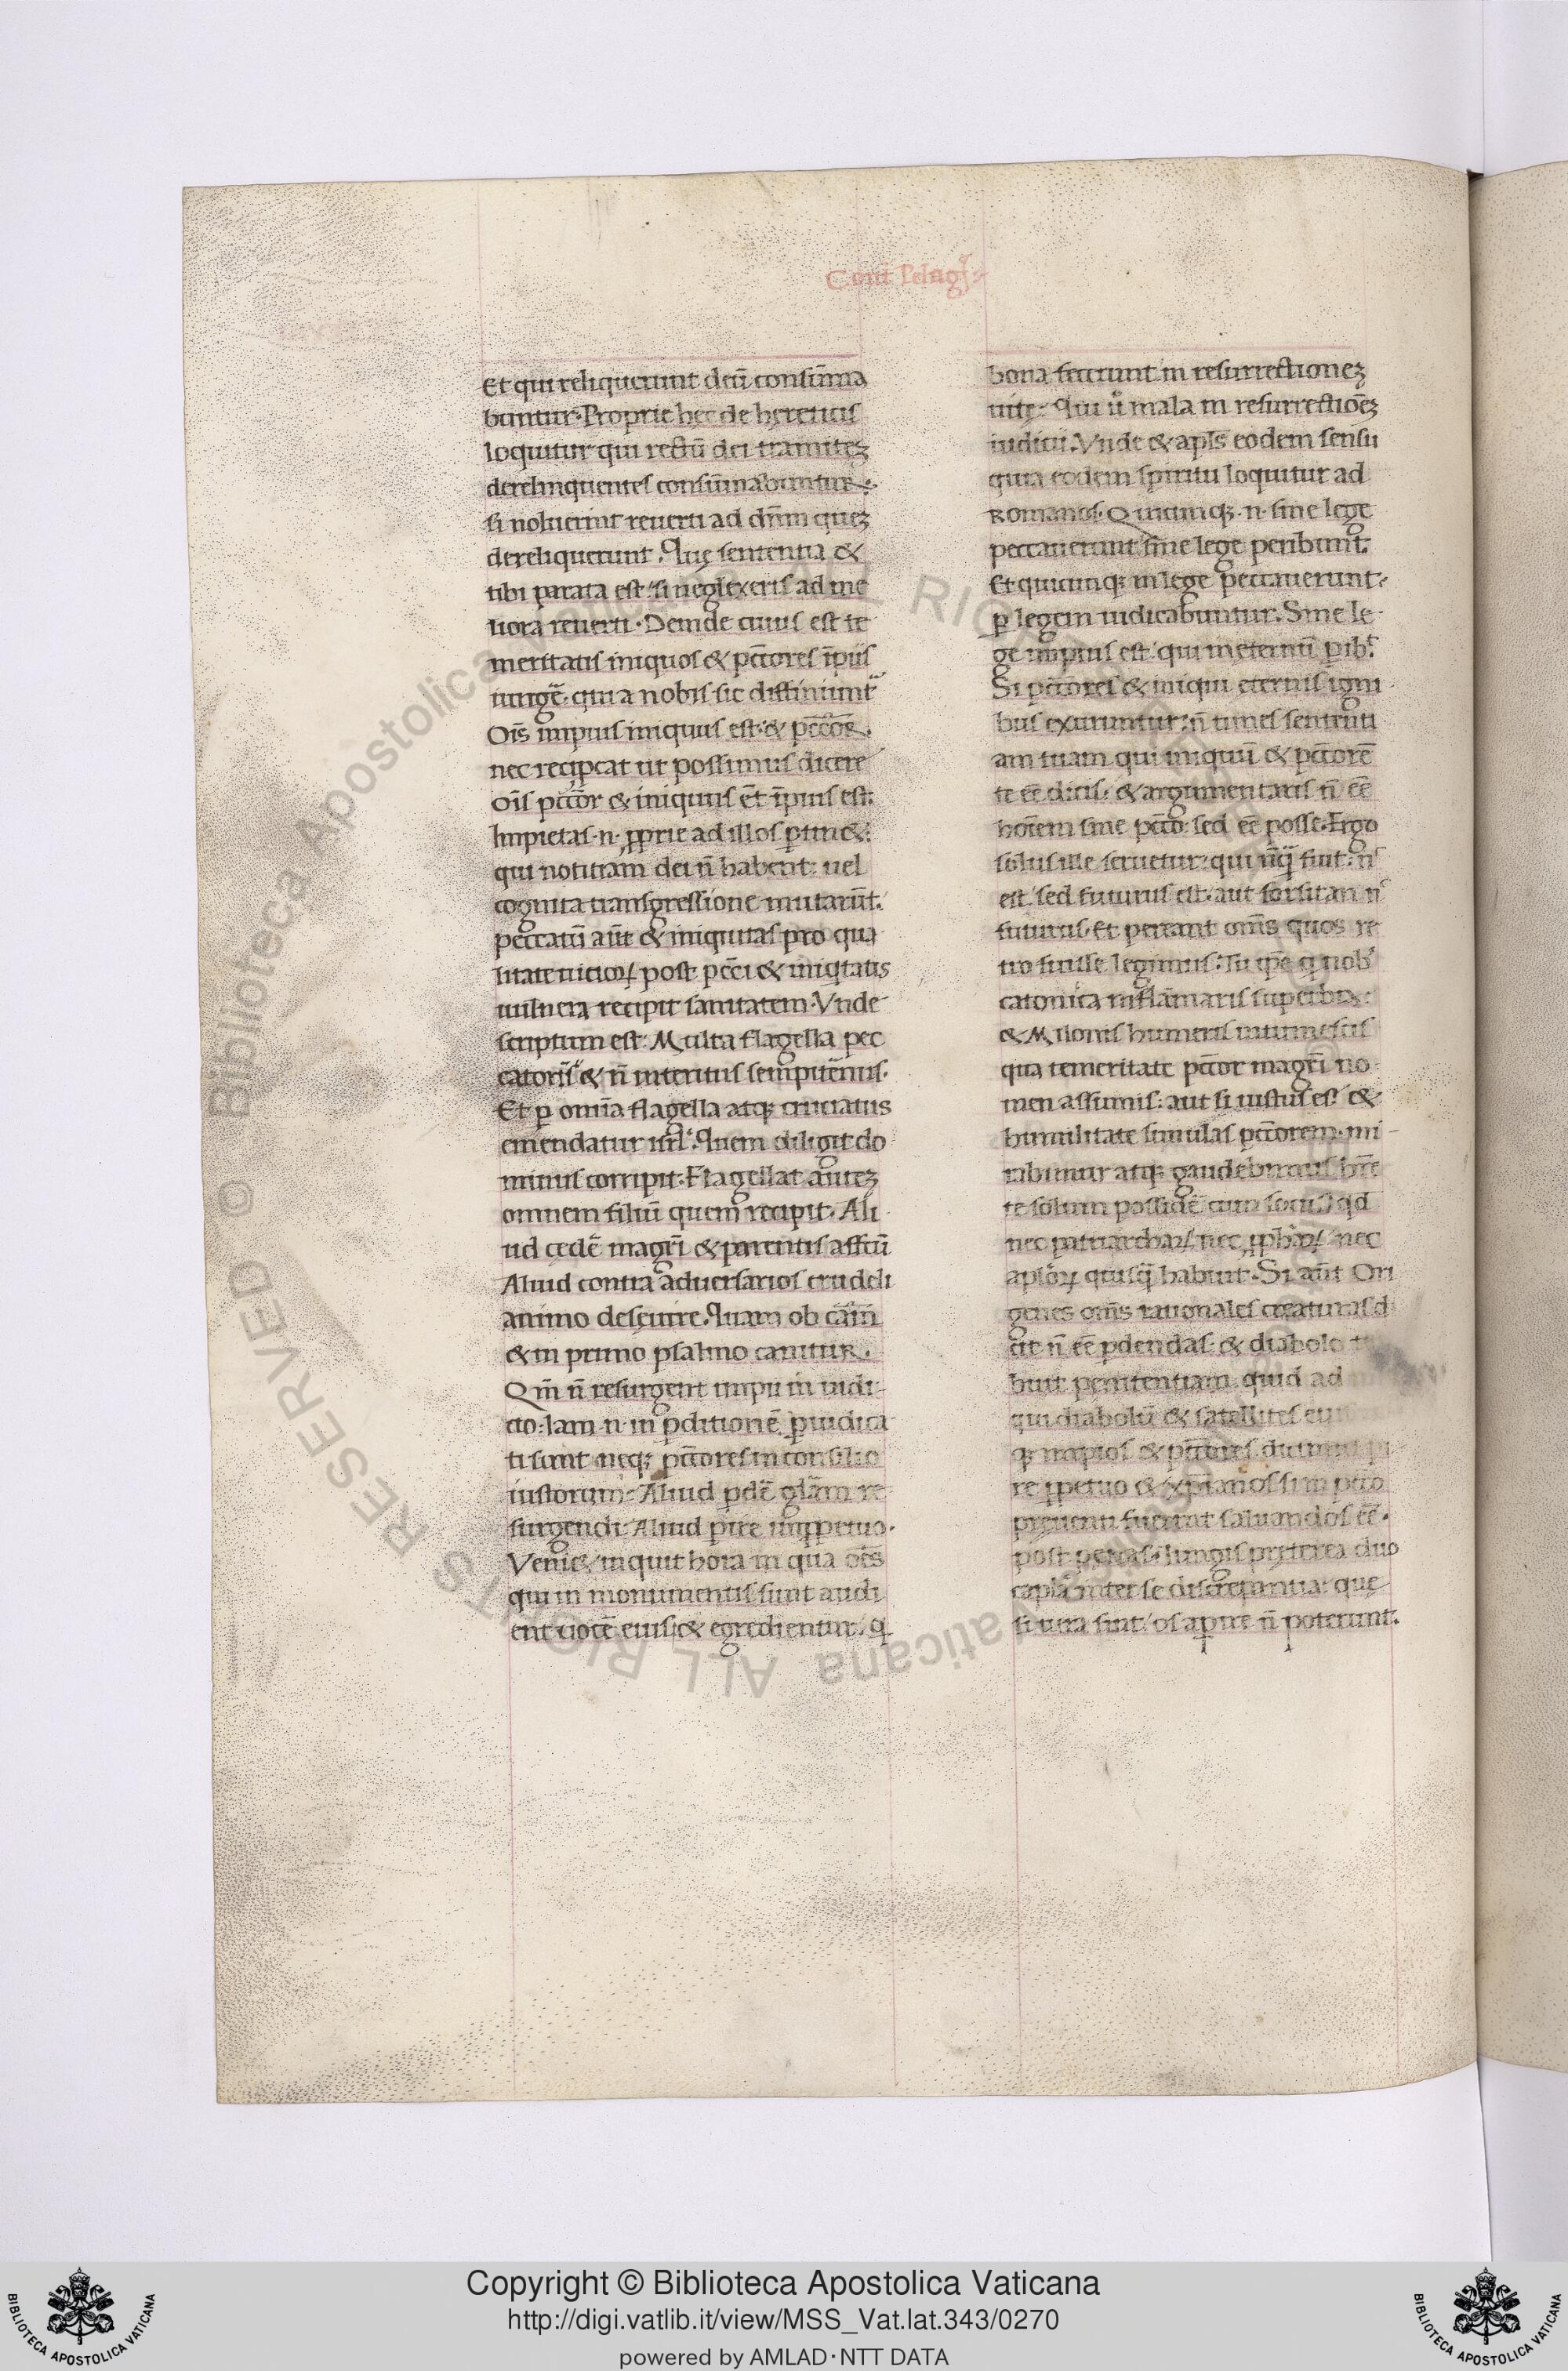 Cont̃ Pelagĩ
Et qui reliquerunt deũ consũma
buntur. Proprie hec de hereticis
loquitur qui rectũ dei tramitez
derelinquentes consũmabuntur.
si noluerint reuerti ad dñm quez
dereliquerunt. Que sententia &
tibi parata est: si neglexeris ad me
liora reuerti. Deinde cuius est te
meritatis iniquos & pctores ipiis
iungẽ. qui a nobis sic diffiniunt̃
Oĩs impius iniquus est & pcc̃or.
nec recipcat ut possimus dicere
oĩs pcc̃or & iniquus ẽt ĩpius est.
Impietas .n. proprie ad illos ꝑtin&:
qui notitiam dei ñ habent: uel
cognita transgressione mutarũt.
peccatũ aũt & iniquitas pro qua
litate uicioꝝ post pc̃ci & iniqtatis
uulnera recipit sanitatem. Vnde
scriptum est: Multa flagella pec
catoris & ñ interitus sempitẽnus.
Et ꝑ omĩa flagella atqꝫ cruciatus
emendatur isrl̃. Quem diligit do
minus corripit. Flagellat autez
omnem filiũ quem recipit. Ali
ud cedẽ magr̃i & parentis affcũ
Aliud contra aduersarios crudeli
animo deseuire. Quam ob cãm
& in primo psalmo canitur.
Qm̃ ñ resurgent impii in iudi
cio. Iam .n. in ꝑditionẽ preiudica
ti sunt neqꝫ pctores in consilio
iustorum. Aliud ꝑdẽ glãm re
surgendi. Aliud ꝑire inꝑpetuo.
Veni& inquit hora in qua oẽs
qui in monumentis sunt audi
ent uocẽ eius: & egredientur q̃
bona fecerunt in resurrectionez
uite. Qui ũ mala in resurrectiõez
iudicii. Vnde & apls̃ eodem sensu
quia eodem spiritu loquitur ad
Romanos. Quicunqꝫ .n. sine lege
peccauerunt sine lege peribunt.
Et quicunqꝫ in lege peccauerunt.
ꝑ legem iudicabuntur. Sine le
ge impius est qui in eternũ ꝑibt̃.
Si pctores & iniqui eternis igni
bus exuruntur: ñ times sententi
am tuam qui iniquũ & pctorẽ
te eẽ dicis. & argumentaris ñ eẽ
hoĩem sine pcc̃o: sed eẽ posse. Ergo
solus ille seruetur: qui nũq̃ fuit: ñ
est sed futurus est. aut forsitan ñ
futurus. Et pereant oms̃ quos re
tro fuisse legimus. Tu ip̃e q̃ nob̃
catonica inflãmaris superbia:
& Milonis humeris intumescis
qua temeritate pctor magr̃i no
men assumis: aut si iustus es &
humilitate simulas pctorem. mi
rabimur atqꝫ gaudebimus hr̃e
te solum possidẽ cum sociis qd̃
nec patriarchaꝝ nec ꝓphaꝝ nec
aploꝝ quisq̃ habuit. Si aũt Ori
genes oms̃ rationales creaturas d
cit ñ eẽ ꝑdendas: & diabolo
buit penitentiam. quid ad
qui diabolũ & satellites
qꝫ impios & pctores dicimus
re ꝑpetuo & xp̃ianos si in pcc̃o
preuenti fuerint saluandos eẽ.
post penas. Iungis preterea duo
capla inter se discrepantia: que
si uera sint os aperire ñ poterunt.
Copyright © Biblioteca Apostolica Vaticana
http://digi.vatlib.it/view/MSS_Vat.lat.343/0270
powered by AMLAD·NTT DATA